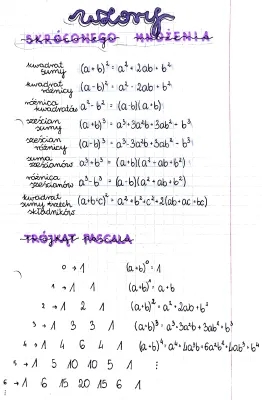 wzory
SKRÓCONEGO MNOŻENIA
kwadrat sumy (a+b)² = a² + 2ab + b²
kwadrat różnicy (a-b)² = a² - 2ab + b²
różnica kwadratów a² - b² = (a-b)(a+b)
sześcian sumy (a+b)³ = a³ + 3a²b + 3ab² + b³
sześcian różnicy (a-b)³ = a³ - 3a²b + 3ab² - b³
suma sześcianów a³ + b³ = (a+b)(a² - ab + b²)
różnica sześcianów a³ - b³ = (a-b)(a² + ab + b²)
kwadrat sumy trzech składników (a+b+c)² = a² + b² + c² + 2(ab + ac + bc)
TRÓJKĄT PASCALA
0 → 1 (a+b)⁰ = 1
1 → 1 1 (a+b)¹ = a + b
2 → 1 2 1 (a+b)² = a² + 2ab + b²
3 → 1 3 3 1 (a+b)³ = a³ + 3a²b + 3ab² + b³
4 → 1 4 6 4 1 (a+b)⁴ = a⁴ + 4a³b + 6a²b² + 4ab³ + b⁴
5 → 1 5 10 10 5 1 ⋮
6 → 1 6 15 20 15 6 1